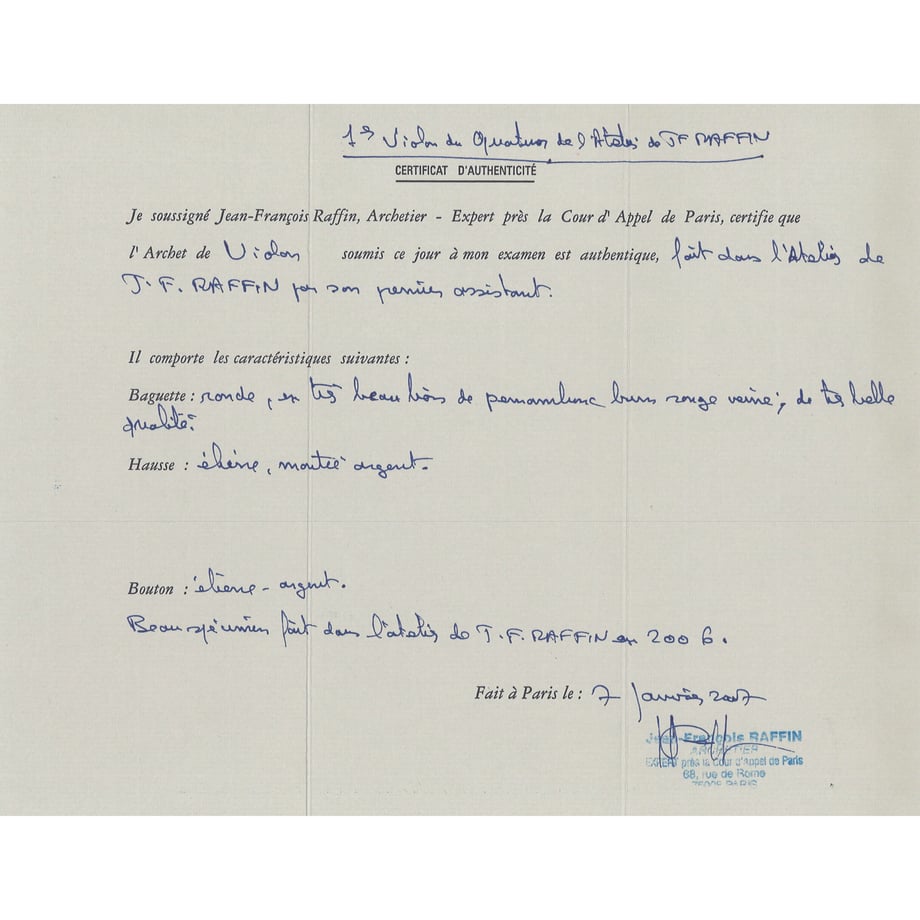 1er Violon du Quatuor de l'Atelier de JF RAFFIN
CERTIFICAT D'AUTHENTICITÉ
Je soussigné Jean-François Raffin, Archetier - Expert près la Cour d'Appel de Paris, certifie que
l'Archet de Violon soumis ce jour à mon examen est authentique, fait dans l'Atelier de
J. F. RAFFIN par son premier assistant.
Il comporte les caractéristiques suivantes :
Baguette : ronde, en très beau bois de pernambouc brun rouge veiné, de très belle
qualité.
Hausse : ébène, montée argent.
Bouton : ébène - argent.
Beau spécimen fait dans l'atelier de J. F. RAFFIN en 2006.
Fait à Paris le : 7 Janvier 2007
Jean-François RAFFIN
ARCHETIER
EXPERT près la Cour d'Appel de Paris
68, rue de Rome
75008 PARIS